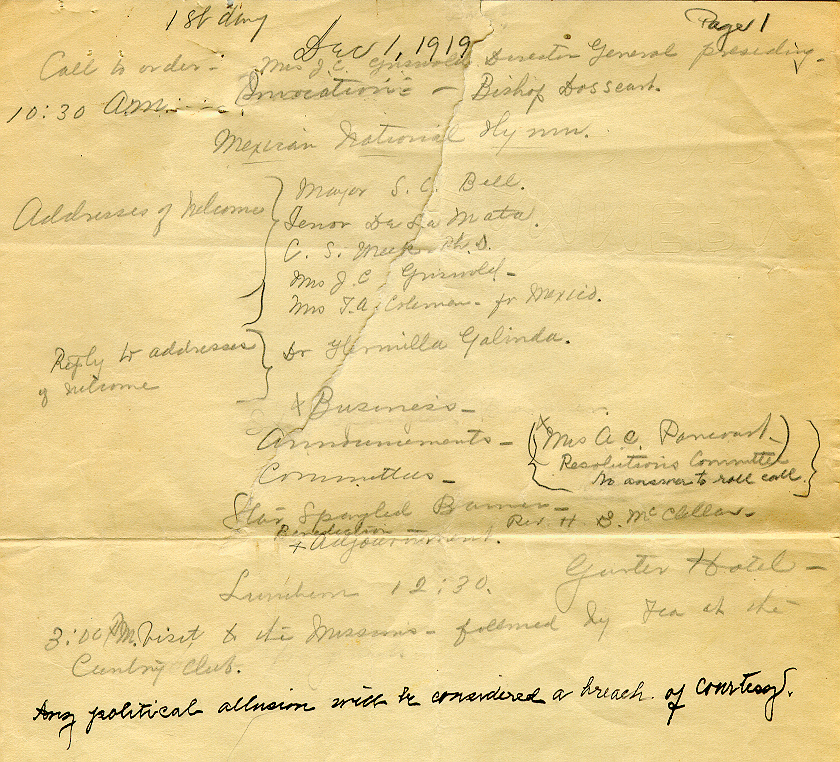 1st day
Page 1
Dec 1, 1919
Call to order:- Mrs J. C. Griswold Director General presiding.
10:30 A.M. Invocation - Bishop Dossett.
Mexican National Hymn.
Addresses of welcome
Mayor S. C. Bell.
Senor De La Mata.
C. S. Meek Ph.D.
Mrs J. C. Griswold -
Mrs T. A. Coleman - for Mexico.
Reply to addresses
of welcome
Dr Hermilla Galinda.
x Business -
Announcements - (x Mrs A. C. Pancoast -)
Resolutions Committee
No answer to roll call
Committees -
Star Spangled Banner -
Benediction Rev. H. B. McClellan -
+ Adjournment.
Luncheon 12:30. Gunter Hotel -
3:00 P.M. Visit to the Missions - followed by Tea at the
Country Club.
Any political allusion will be considered a breach of courtesy.